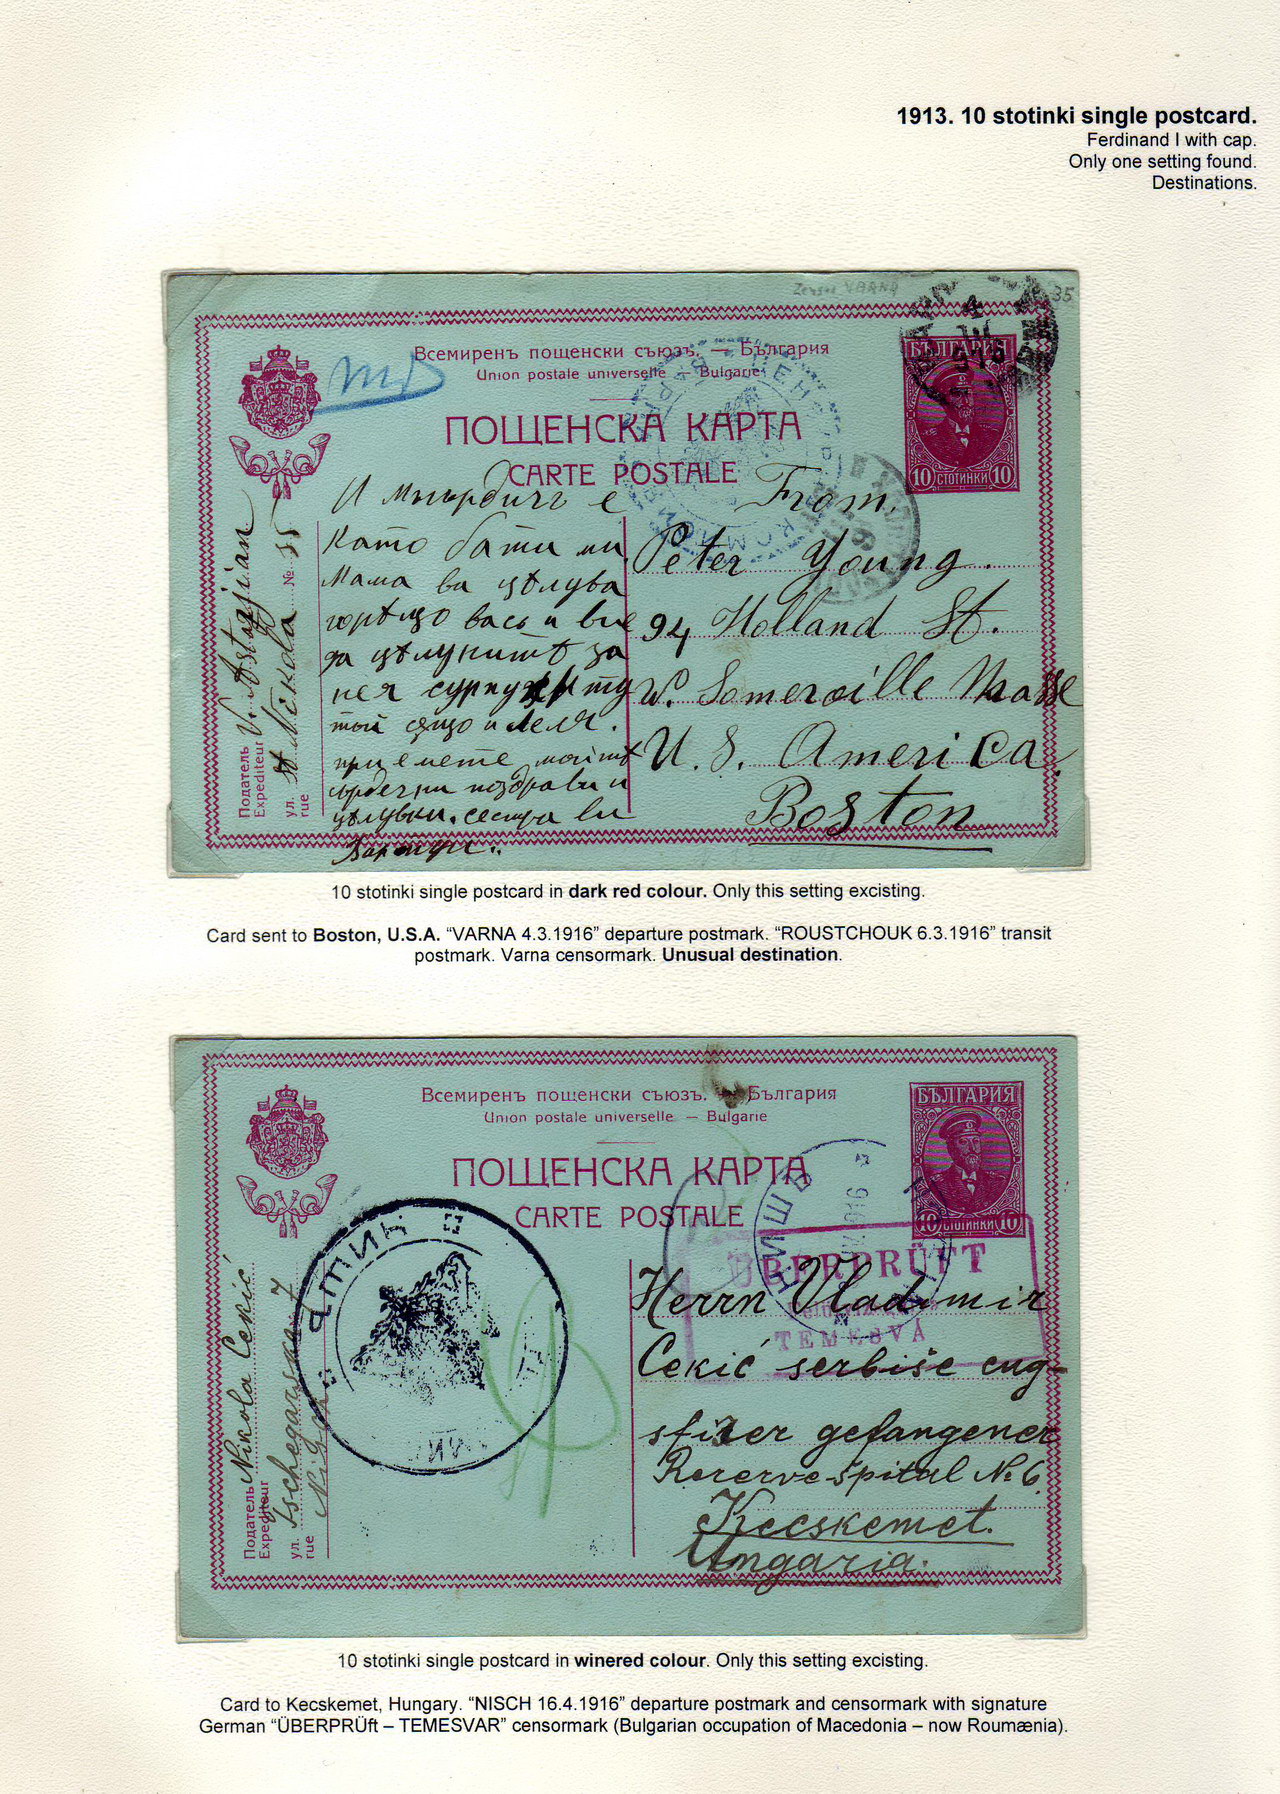 1913. 10 stotinki single postcard.
Ferdinand I with cap.
Only one setting found.
Destinations.
35
Всемиренъ пощенски съюзъ. — България
Union postale universelle — Bulgarie
ПОЩЕНСКА КАРТА
CARTE POSTALE
БЪЛГАРИЯ
10 СТОТИНКИ 10
Податель V. Astagian
Expéditeur
ул. St Nikola № 35
rue
И Мъгърдичъ е
като бати ми
Мама ва цѣлува
горѣщо васъ и вие
да цѣлунитѣ за
нея
тъй също и леля.
приемете моитѣ
сърдечни поздрави и
цѣлувки. сестра ви
From.
Peter Young.
94 Holland St.
W. Somerville Masse
U. S. America.
Boston
10 stotinki single postcard in dark red colour. Only this setting excisting.
Card sent to Boston, U.S.A. “VARNA 4.3.1916” departure postmark. “ROUSTCHOUK 6.3.1916” transit
postmark. Varna censormark. Unusual destination.
Всемиренъ пощенски съюзъ. — България
Union postale universelle — Bulgarie
ПОЩЕНСКА КАРТА
CARTE POSTALE
БЪЛГАРИЯ
10 СТОТИНКИ 10
НИШЪ
ÜBERPRÜFT
TEMESVÁ
Податель Nikola Cekić
Expéditeur
ул. Tschegarska 7
rue
Herrn Vladimir
Cekić serbiše cug-
sfirer gefangener
Reserve-Spital № 6
Kecskemet.
Ungaria.
10 stotinki single postcard in winered colour. Only this setting excisting.
Card to Kecskemet, Hungary. “NISCH 16.4.1916” departure postmark and censormark with signature
German “ÜBERPRÜft – TEMESVAR” censormark (Bulgarian occupation of Macedonia – now Roumænia).